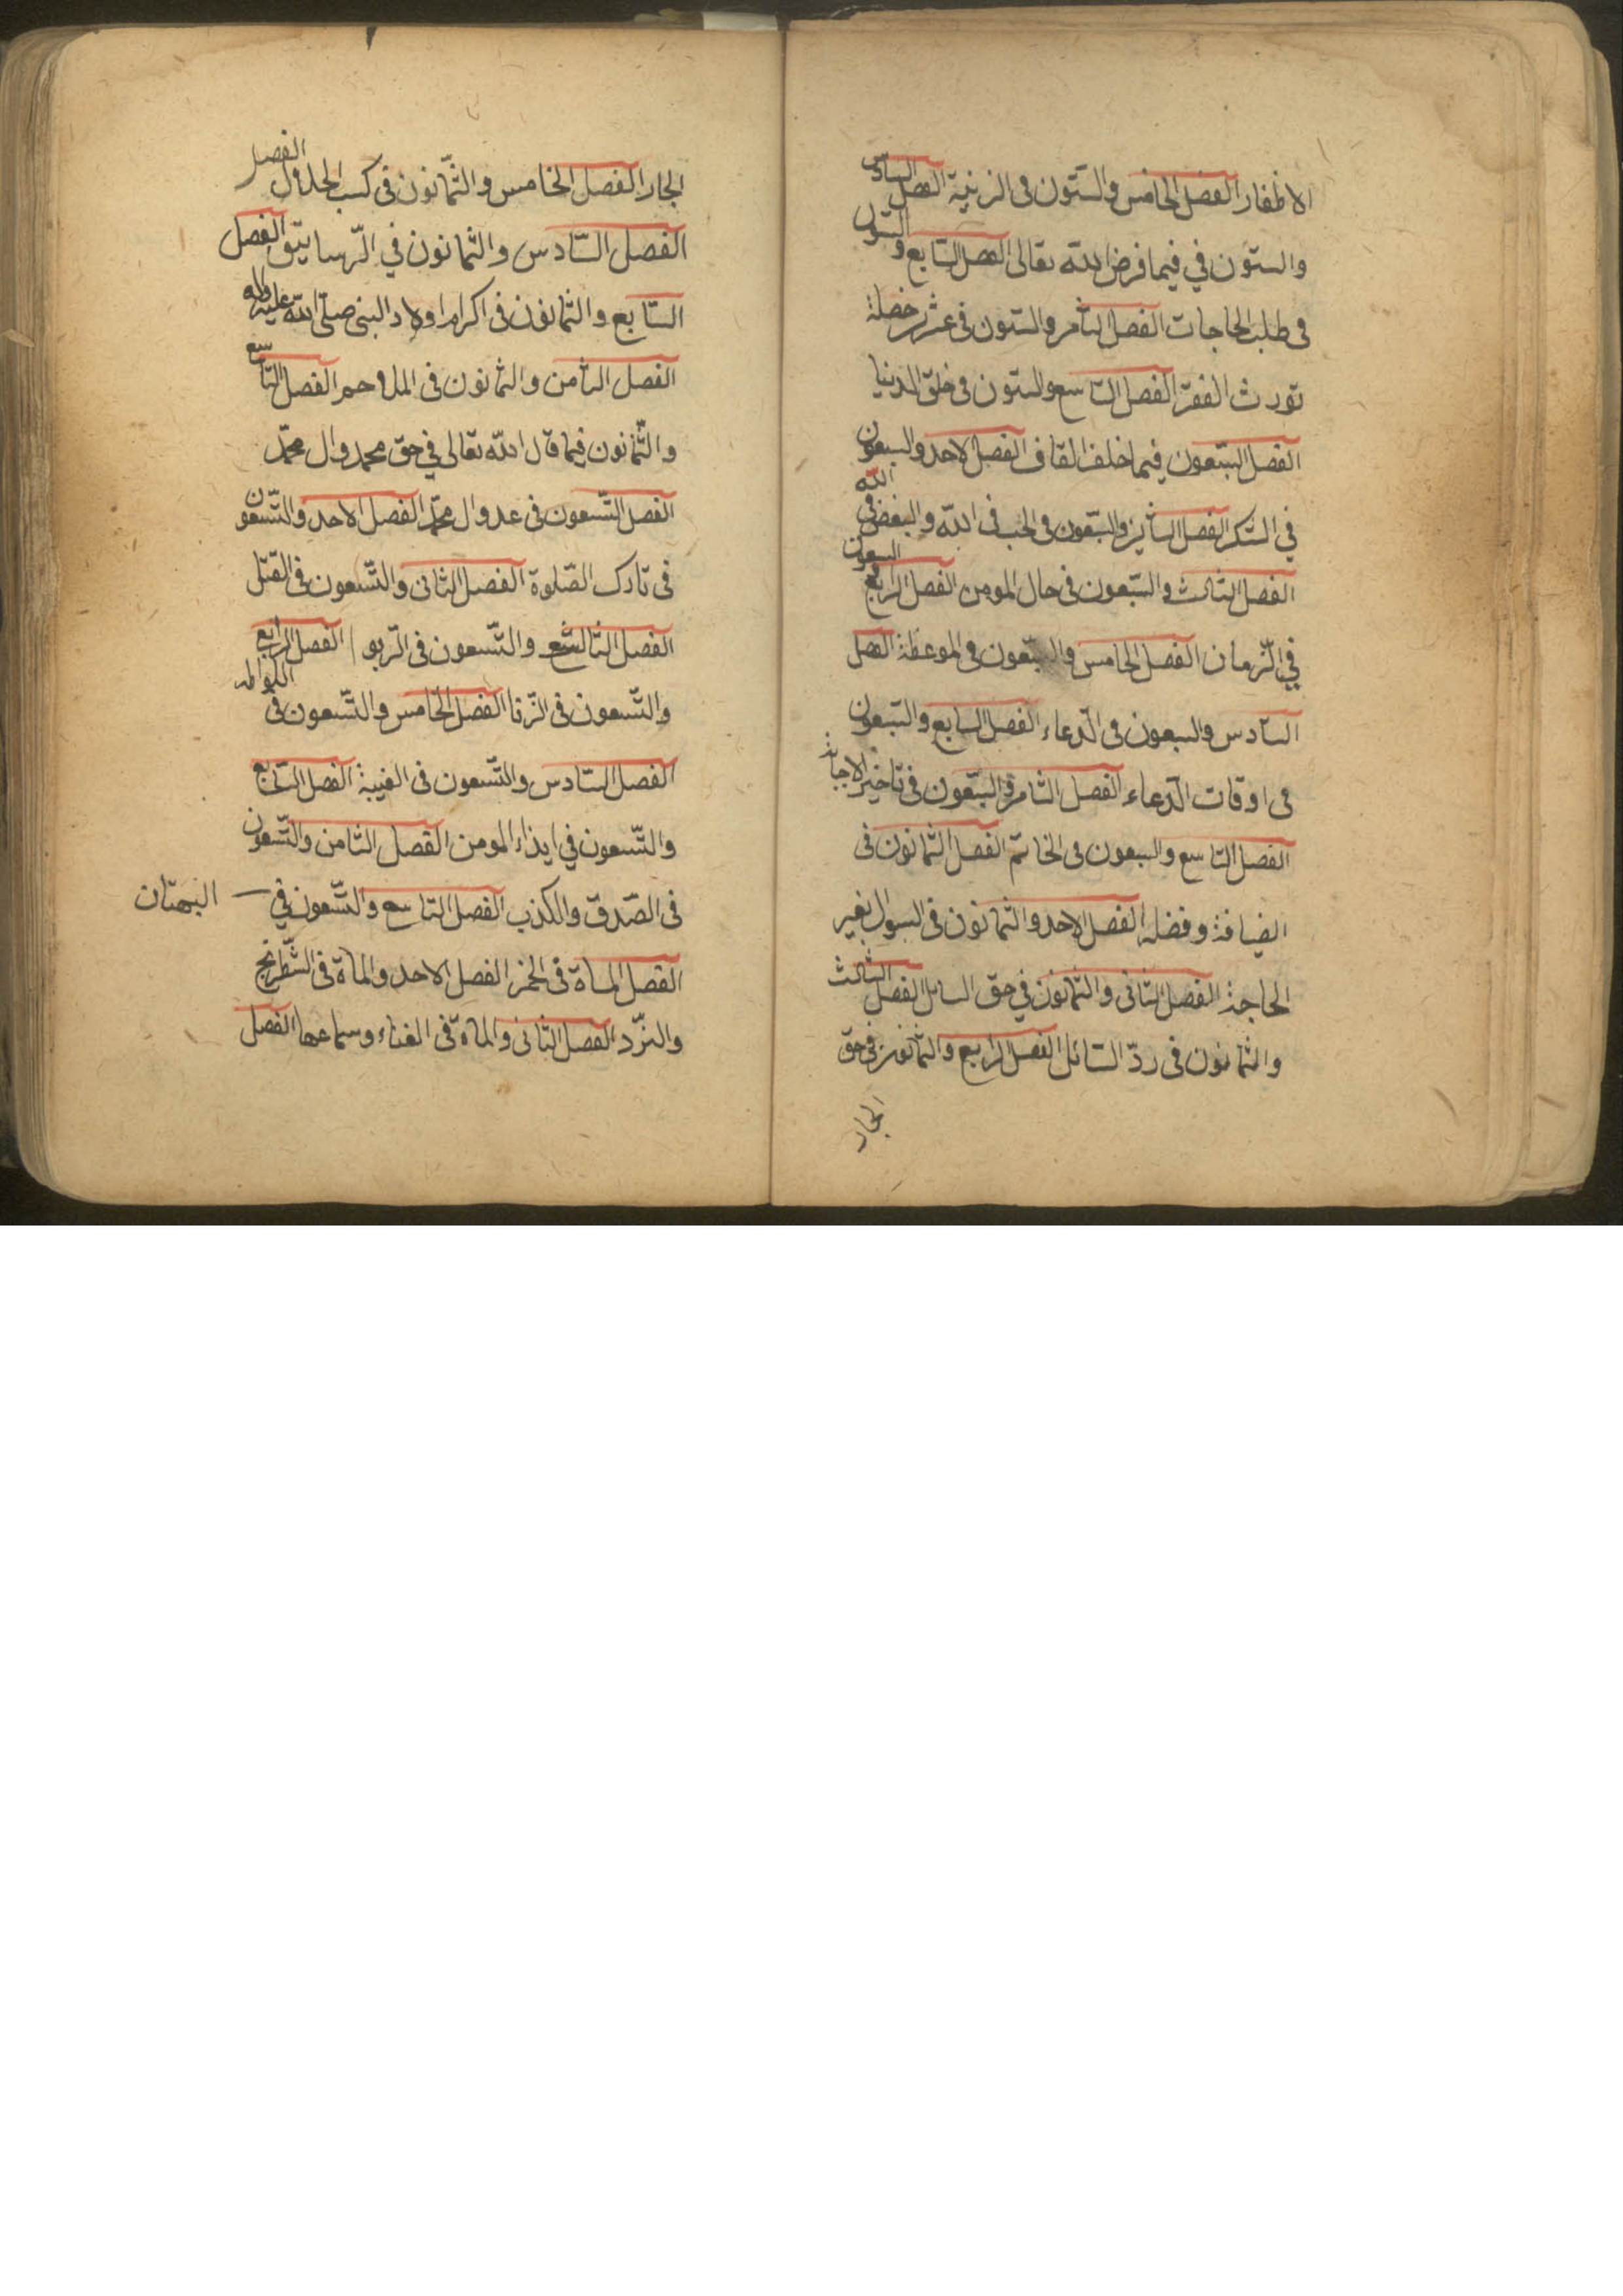 الاظفار الفصل الخامس والستون فى الزينة الفصل السادس
والستون في فيما فرض الله تعالى الفصل السابع والستون
فى طلب الحاجات الفصل الثامن والستون فى عشرين خصلة
تورث الفقر الفصل التاسع والستون فى خلق الدنيا
الفصل السبعون فيما خلف القاف الفصل الاحد والسبعون
في الشكر الفصل الثانى والسبعون فى الحب فى الله والبغض فى الله
الفصل الثالث والسبعون فى حال المومن الفصل الرابع والسبعون
في الزمان الفصل الخامس والسبعون فى الموعظة الفصل
السادس والسبعون فى الدعاء الفصل السابع والسبعون
فى اوقات الدعاء الفصل الثامن والسبعون فى تاخير الاجابة
الفصل التاسع والسبعون فى الخاتم الفصل الثمانون فى
الضيافة وفضله الفصل الاحد والثمانون فى السوال بغير
الحاجة الفصل الثانى والثمانون في حق السائل الفصل الثالث
والثمانون فى ردّ السائل الفصل الرابع والثمانون فى حق
الجار
الجار الفصل الخامس والثمانون فى كسب الحلال الفصل
الفصل السادس والثمانون في الرساتيق الفصل
السابع والثمانون فى اكرام اولاد النبى صلى الله عليه واله
الفصل الثامن والثمانون فى الملاحم الفصل التاسع
والثمانون فيما قال الله تعالى في حق محمد وال محمد
الفصل التسعون فى عدو ال محمد الفصل الاحد والتسعون
فى تارك الصلوة الفصل الثانى والتسعون فى القتل
الفصل الثالث والتسعون فى الربو الفصل الرابع
والتسعون فى الزنا الفصل الخامس والتسعون فى اللواطه
الفصل السادس والتسعون فى الغيبة الفصل السابع
والتسعون في ايذاء المومن الفصل الثامن والتسعون
فى الصدق والكذب الفصل التاسع والتسعون في البهتان
الفصل الماة فى الخمر الفصل الاحد والماة فى الشطرنج
والنرد الفصل الثانى والماة فى الغناء وسماعها الفصل